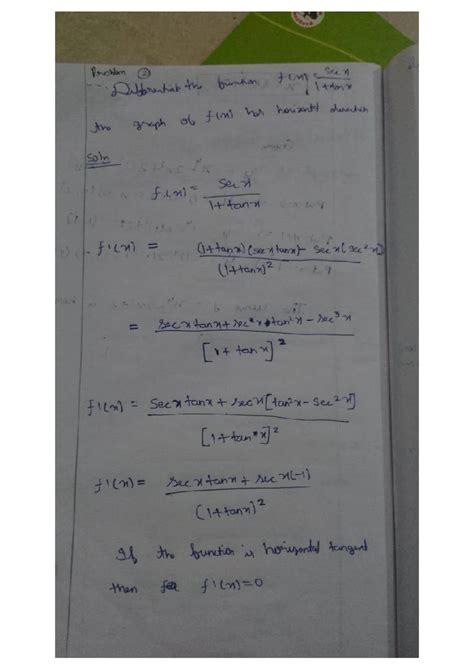 Problem (2)
Differentiat the function f(x) = sec x / 1+tan x
the graph of f(x) has horizontal direction
Soln
f(x) = sec x / 1+tan x
f'(x) = (1+tan x)(sec x tan x) - sec x (sec² x) / (1+tan x)²
= sec x tan x + sec x tan² x - sec³ x / [1+ tan x]²
f'(x) = sec x tan x + sec x [tan² x - sec² x] / [1+tan x]²
f'(x) = sec x tan x + sec x (-1) / (1+tan x)²
If the function is horizontal tangent
then f'(x) = 0